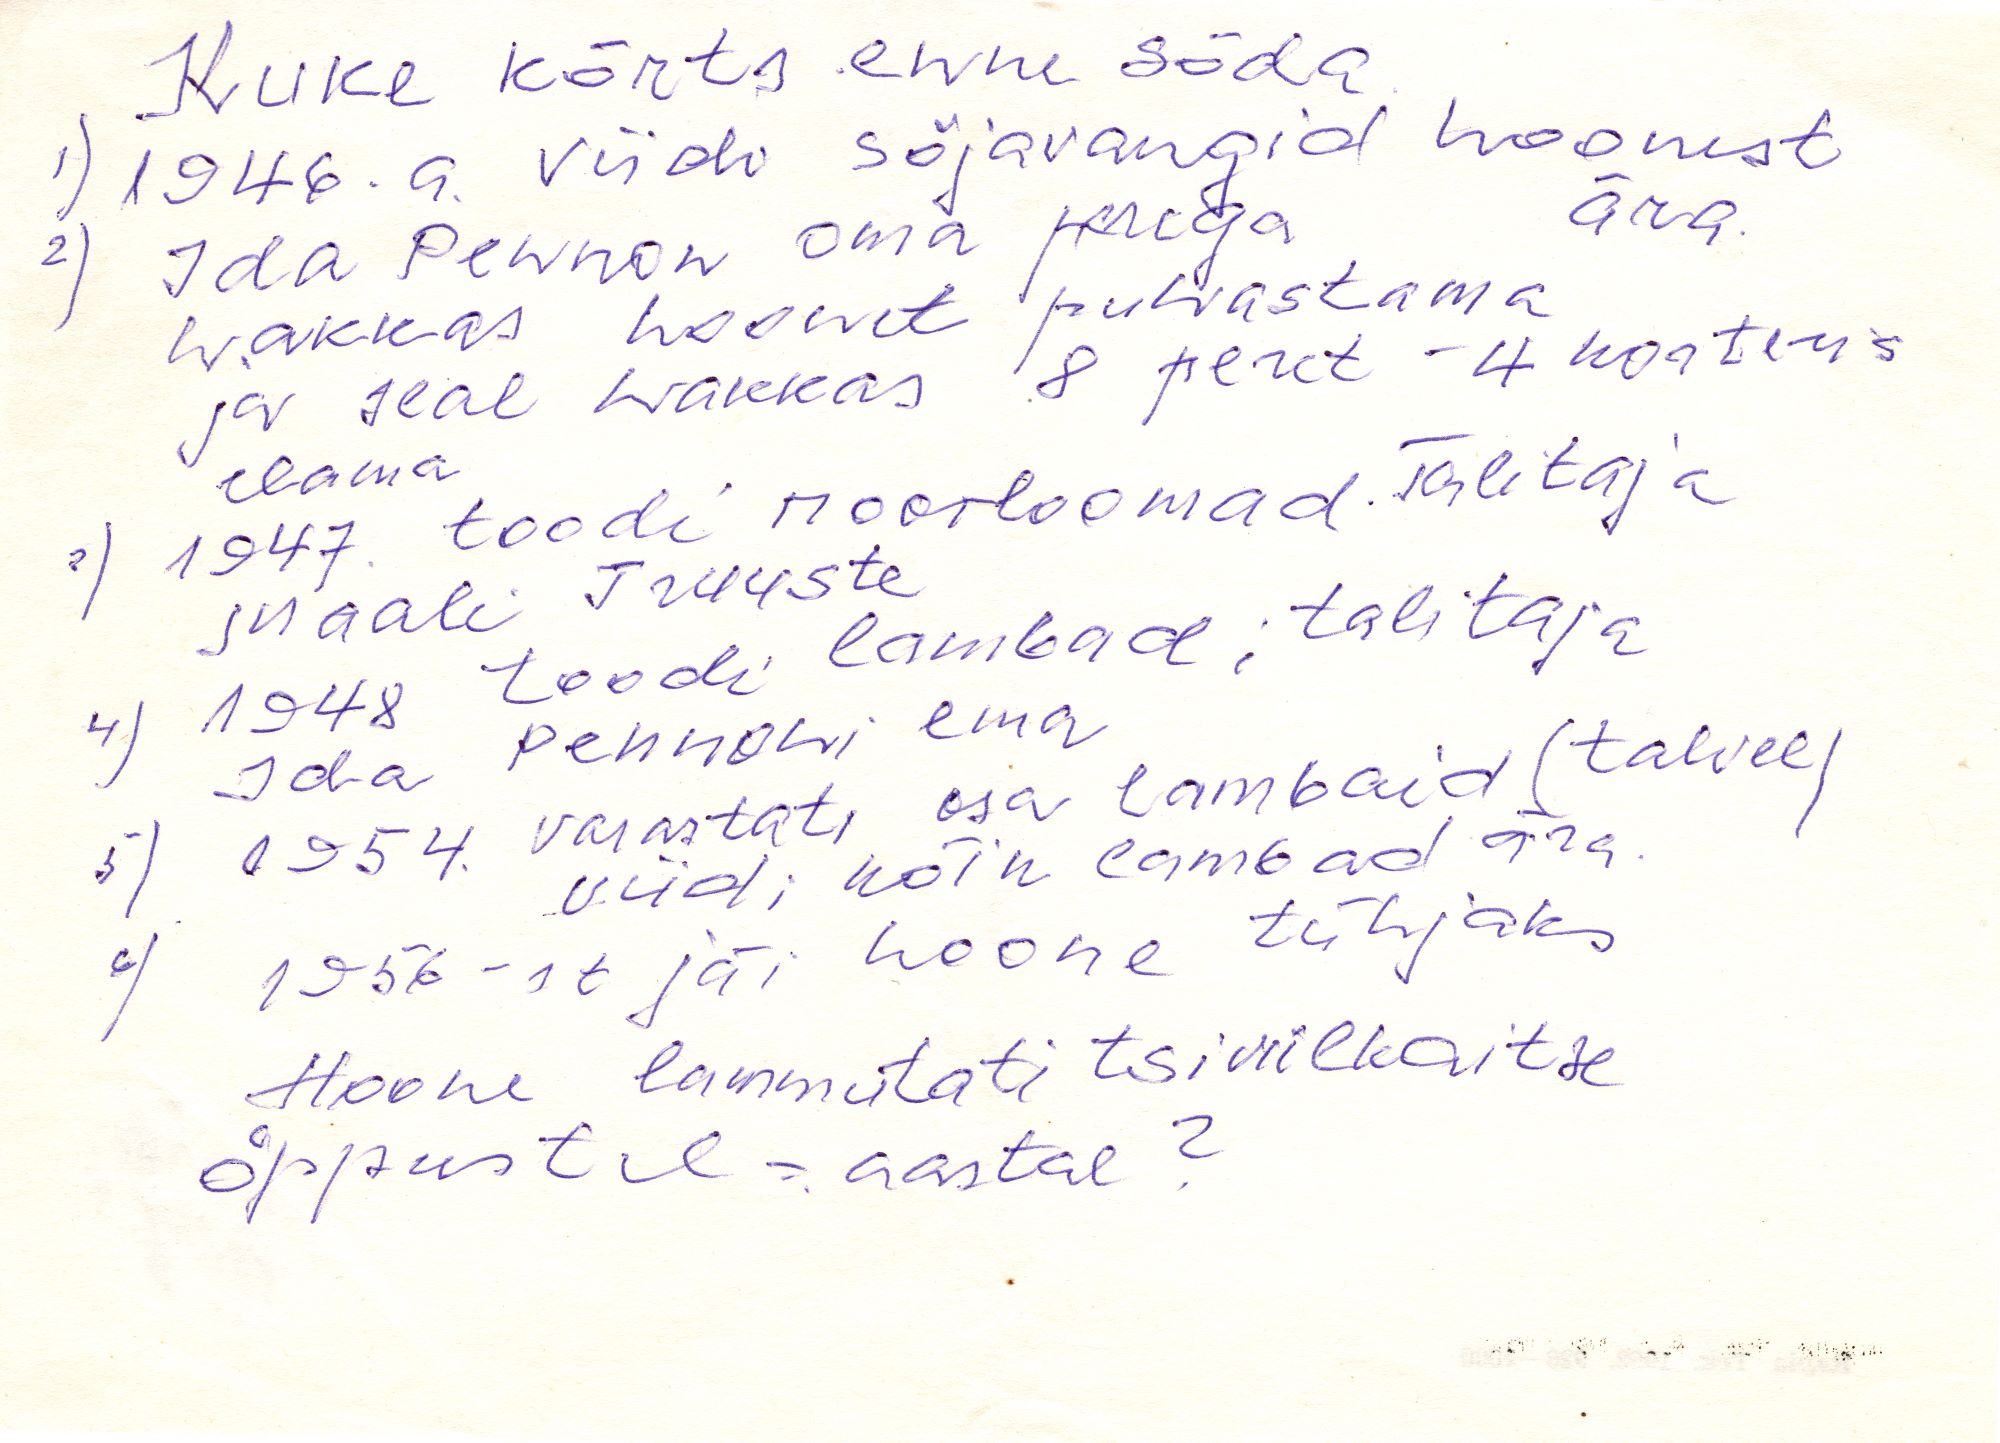 Kuke kõrts enne sõda.
1) 1946. a. viidi sõjavangid hoonest
ära.
2) Ida Pennon oma perega
hakkas hoonet puhastama
ja seal hakkas 8 peret - 4 korteris
elama
3) 1947. toodi noorloomad. Talitaja
Juaali Truuste
4) 1948 toodi lambad; talitaja
Ida Pennoni ema
5) 1954. varastati osa lambaid (talvel)
viidi kõik lambad ära.
6) 1956-st jäi hoone tühjaks
Hoone lammutati tsiviilkaitse
õppustel - aastal?